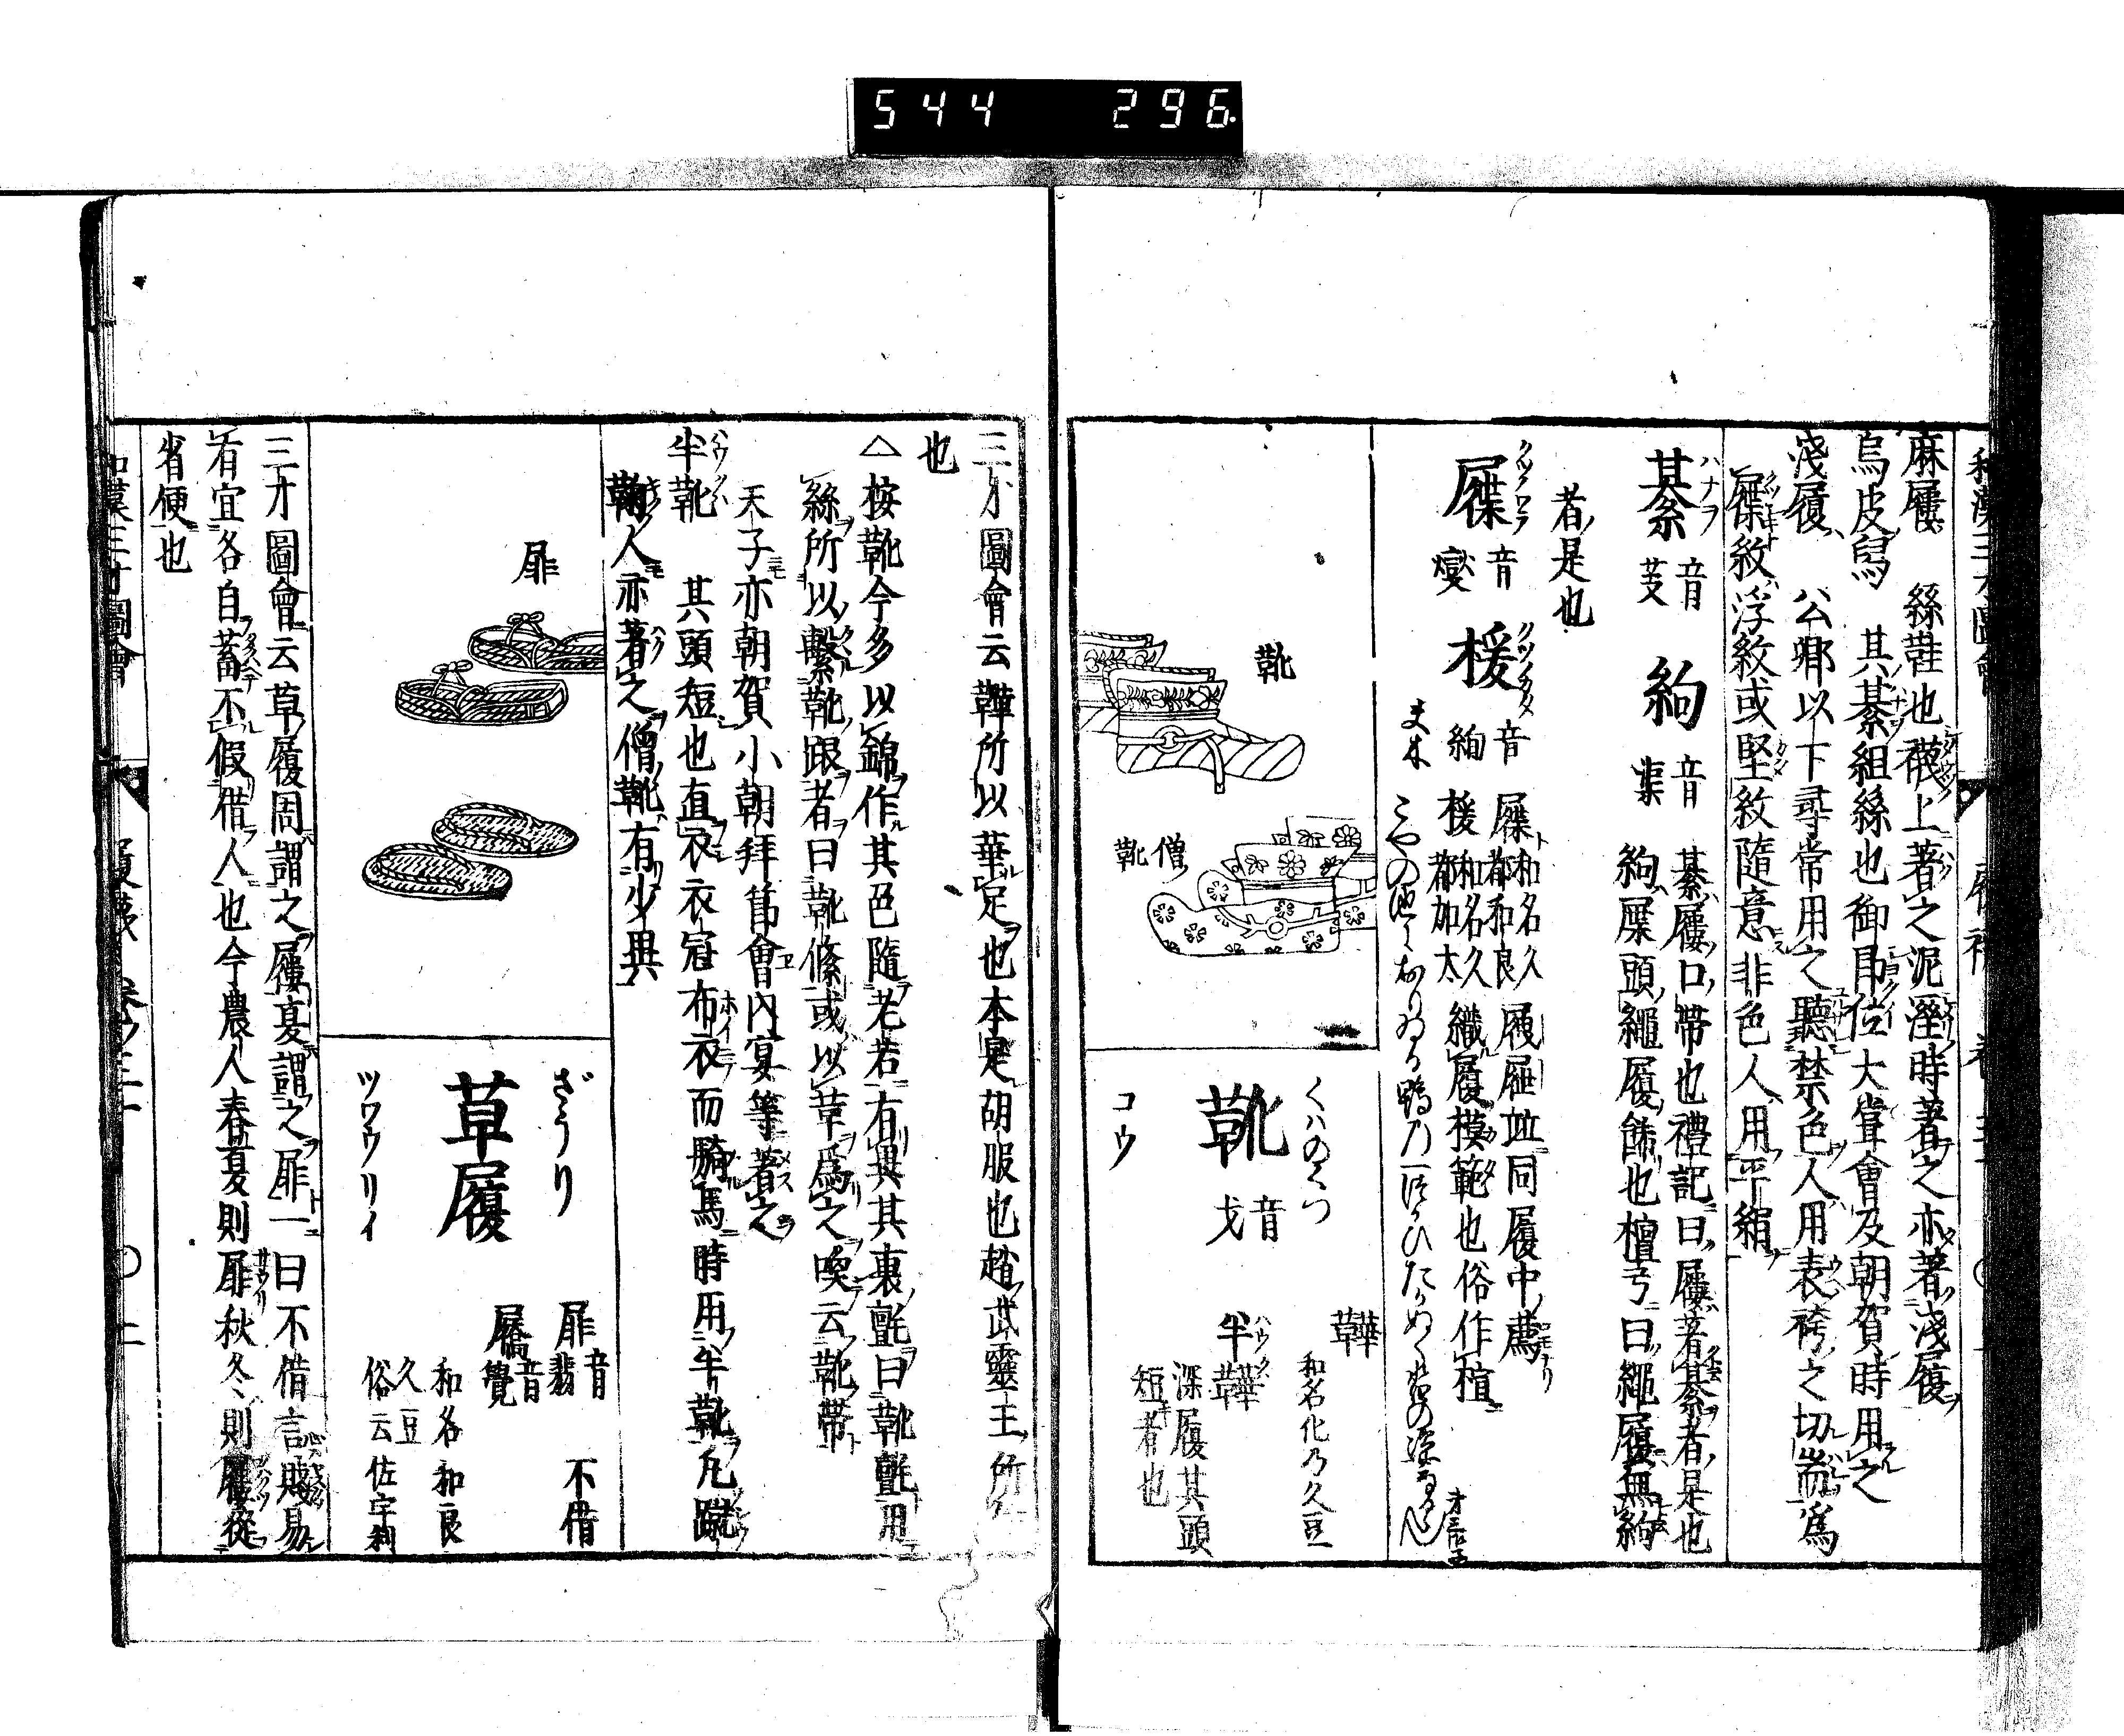 544 296
麻屨 絲鞋也襪上著之泥溼時著之亦著淺履
烏皮舄 其綦組絲也御即位大甞會及朝賀時用之
淺履 公卿以下尋常用之聽禁色人用表袴之切端爲
屧紋浮紋或堅紋隨意非色人用平絹
綦 音芰 絇 音渠
綦屨口帶也禮記曰屨著綦者是也
絇屨頭繩履飾也檀弓曰繩履無絇
者是也
屧 音燮 楥 音絢
屧 和名久都和良 履屜並同履中薦
楥 和名久都加太 織履模範也俗作楦
夫木
靴
僧靴
くハのくつ
靴 音戈
コウ
鞾 和名化乃久豆
半鞾 深履其頭短者也
三才圖會云鞾所以華足也本是胡服也趙武靈王所
也
△按靴今多以錦作其色隨老若有異其裏氈曰靴氈用
絲所以繫靴跟者曰靴絛或以革爲之喚云靴帶
天子亦朝賀小朝拜節會内宴等著之
半靴 其頭短也直衣衣冠布衣而騎馬時用半靴凡蹴
鞠人亦著之僧靴有少異
扉
ざうり
草履
ツワウリイ
扉 音翡 不借
屩 音覺
和名和良久豆
俗云佐宇利
三才圖會云草履周謂之屨夏謂之扉一曰不借言賤易
有宜各自蓄不假借人也今農人春夏則扉秋冬則屨從
省便也